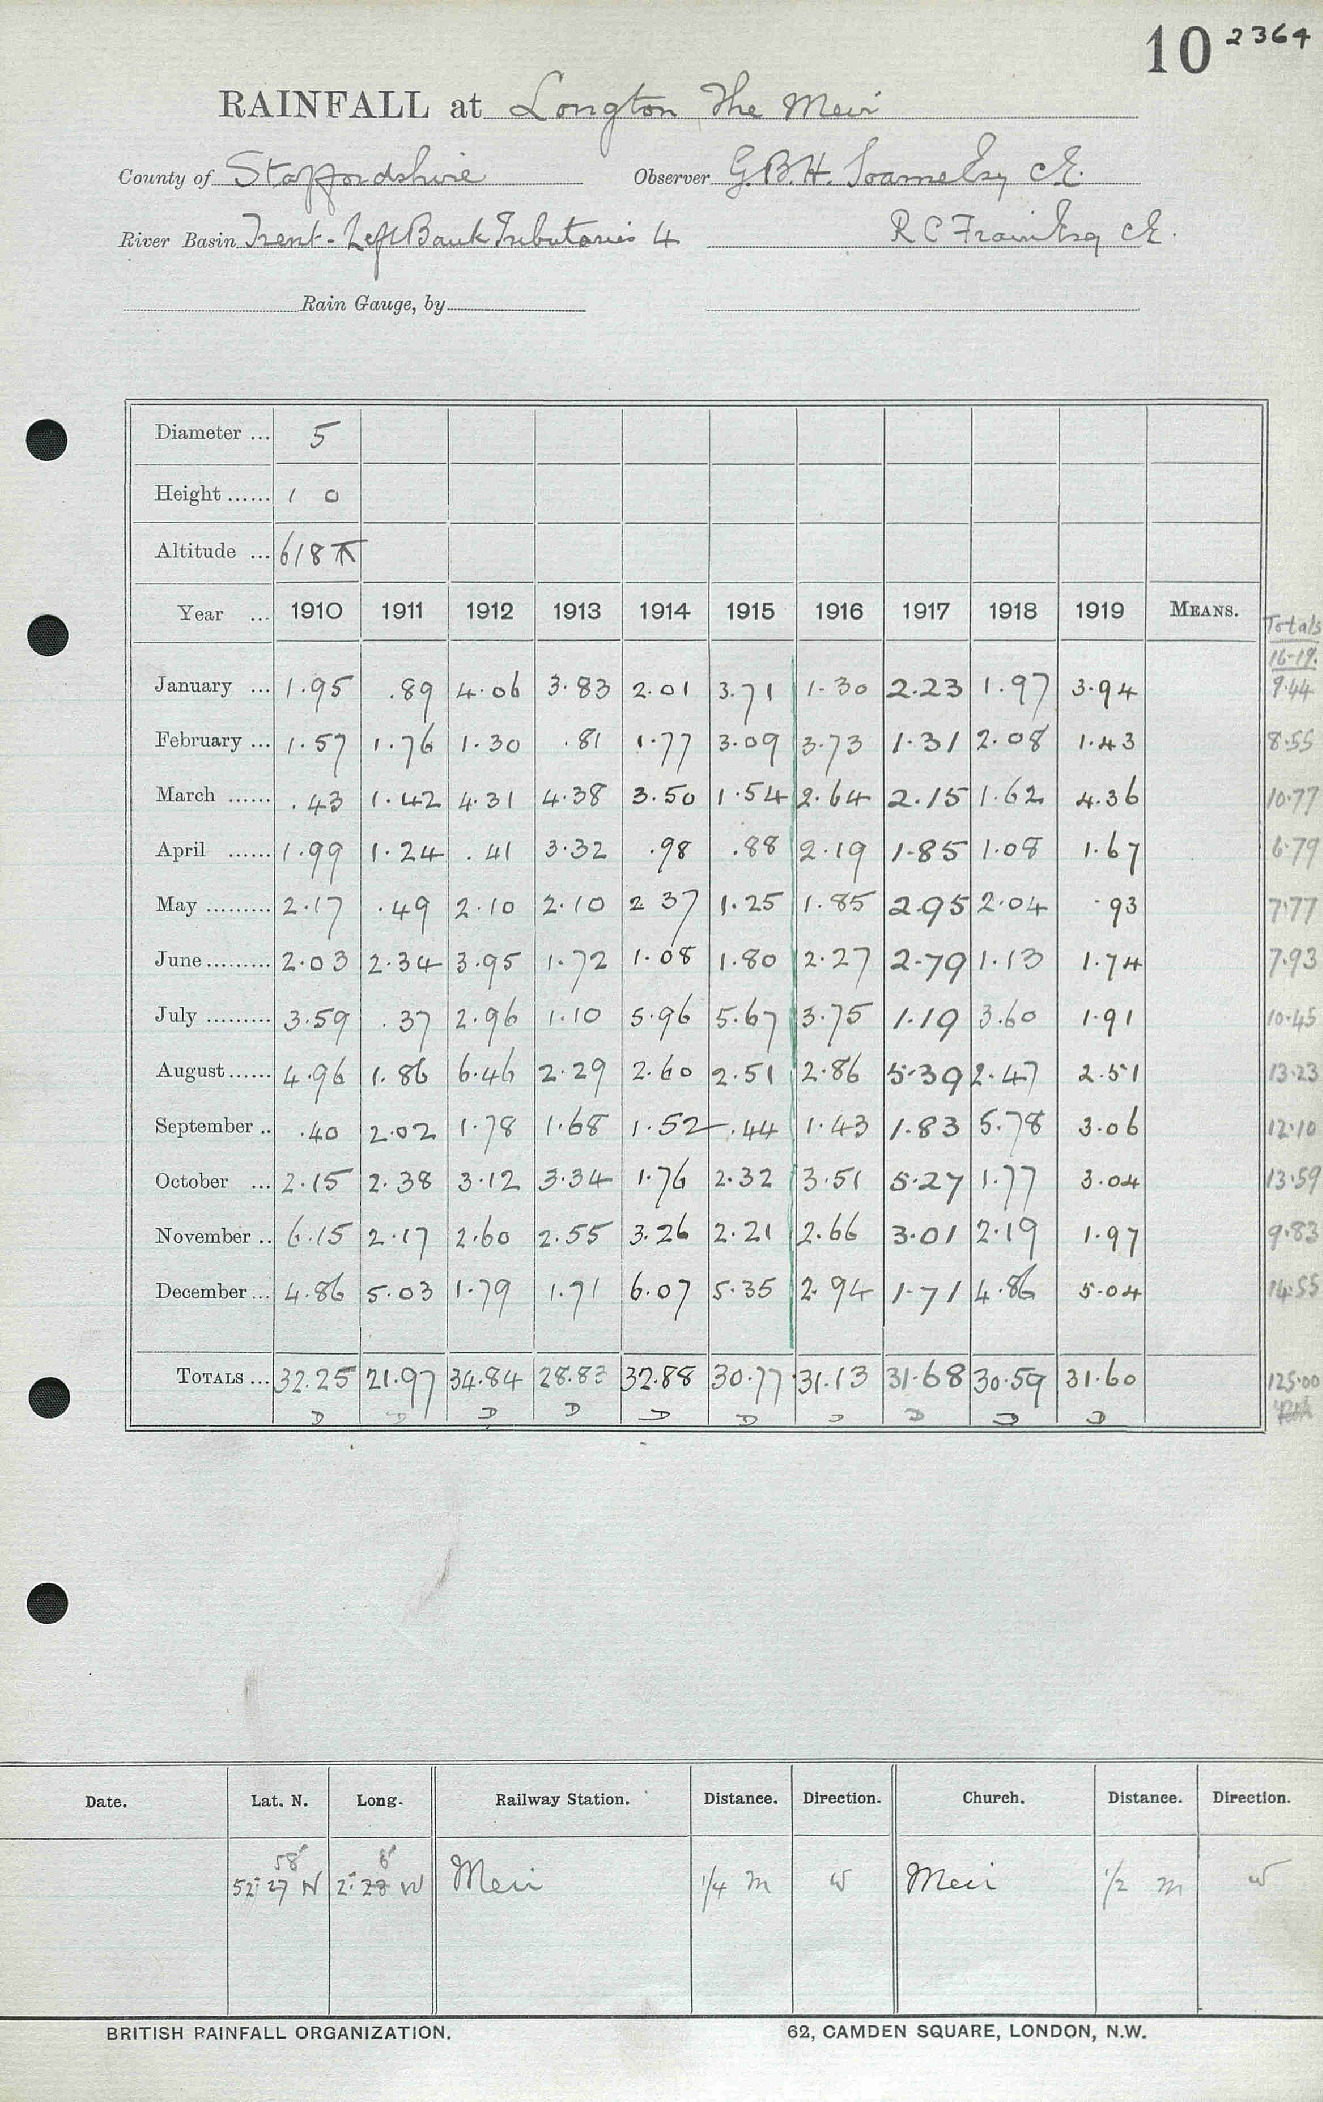 10 2364
RAINFALL at Longton The Meir
County of Staffordshire Observer G.B.H. Soame Esq CE.
River Basin Trent - Left Bank Tributaries 4 R C Frain Esq CE.
Rain Gauge, by
Diameter ... 5
Height ...... 1 0
Altitude ... 618
Year ... 1910 1911 1912 1913 1914 1915 1916 1917 1918 1919 MEANS. Totals
16-19.
January ... 1.95 .89 4.06 3.83 2.01 3.71 1.30 2.23 1.97 3.94 9.44
February ... 1.57 1.76 1.30 .81 1.77 3.09 3.73 1.31 2.08 1.43 8.55
March ...... .43 1.42 4.31 4.38 3.50 1.54 2.64 2.15 1.62 4.36 10.77
April ...... 1.99 1.24 .41 3.32 .98 .88 2.19 1.85 1.08 1.67 6.79
May ......... 2.17 .49 2.10 2.10 2 37 1.25 1.85 2.95 2.04 .93 7.77
June ......... 2.03 2.34 3.95 1.72 1.08 1.80 2.27 2.79 1.13 1.74 7.93
July ......... 3.59 .37 2.96 1.10 5.96 5.67 3.75 1.19 3.60 1.91 10.45
August ...... 4.96 1.86 6.46 2.29 2.60 2.51 2.86 5.39 2.47 2.51 13.23
September .. .40 2.02 1.78 1.68 1.52 .44 1.43 1.83 5.78 3.06 12.10
October ... 2.15 2.38 3.12 3.34 1.76 2.32 3.51 5.27 1.77 3.04 13.59
November .. 6.15 2.17 2.60 2.55 3.26 2.21 2.66 3.01 2.19 1.97 9.83
December ... 4.86 5.03 1.79 1.71 6.07 5.35 2.94 1.71 4.86 5.04 14.55
TOTALS ... 32.25 21.97 34.84 28.83 32.88 30.77 31.13 31.68 30.59 31.60 125.00
D D D D D D D D D D
Date. Lat. N. Long. Railway Station. Distance. Direction. Church. Distance. Direction.
58 6
52° 27 N 2° 28 W Meir 1/4 m W Meir 1/2 m W
BRITISH RAINFALL ORGANIZATION. 62, CAMDEN SQUARE, LONDON, N.W.